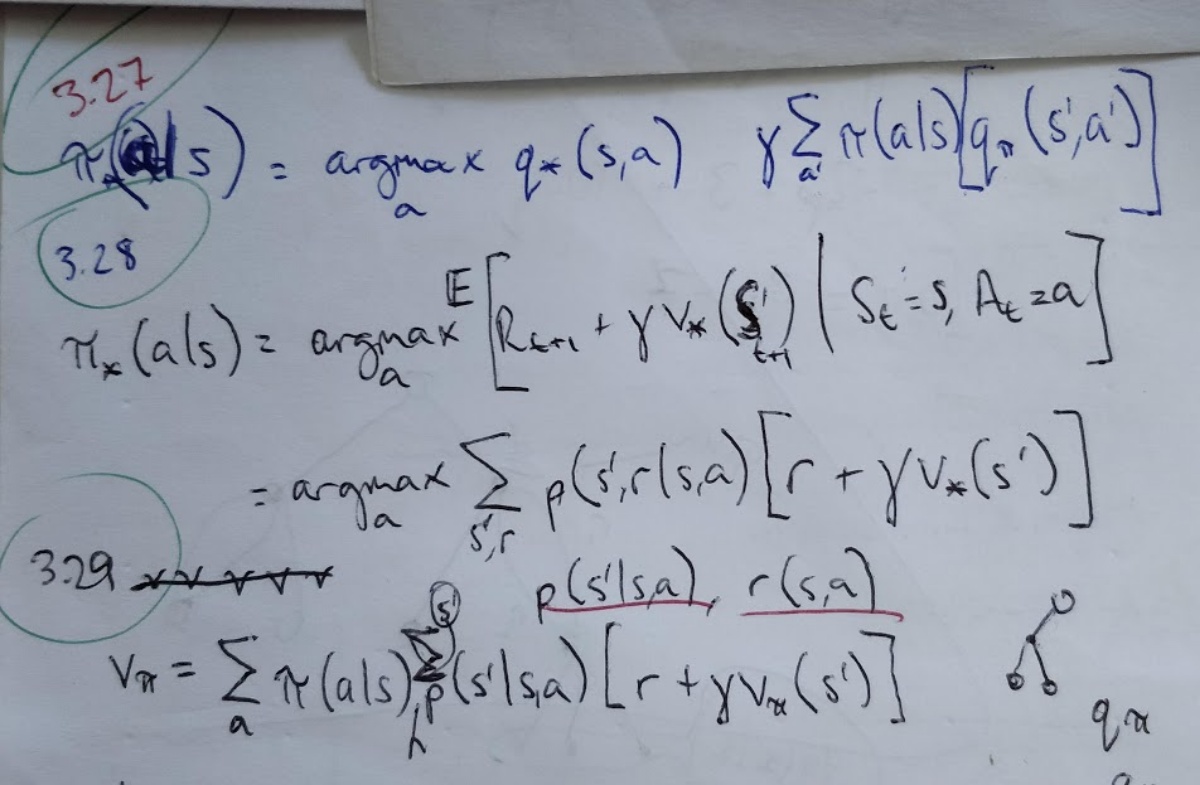 3.27
π*(a|s) = argmax_a q*(s,a) γ Σ_a' π(a|s)[q_π(s',a')]
3.28
π*(a|s) = argmax_a E[R_{t+1} + γ v*(S_{t+1}) | S_t = s, A_t = a]
= argmax_a Σ_{s',r} p(s',r|s,a)[r + γ v*(s')]
3.29
p(s'|s,a), r(s,a)
v_π = Σ_a π(a|s) Σ_{s'} p(s'|s,a)[r + γ v_π(s')]
q_π